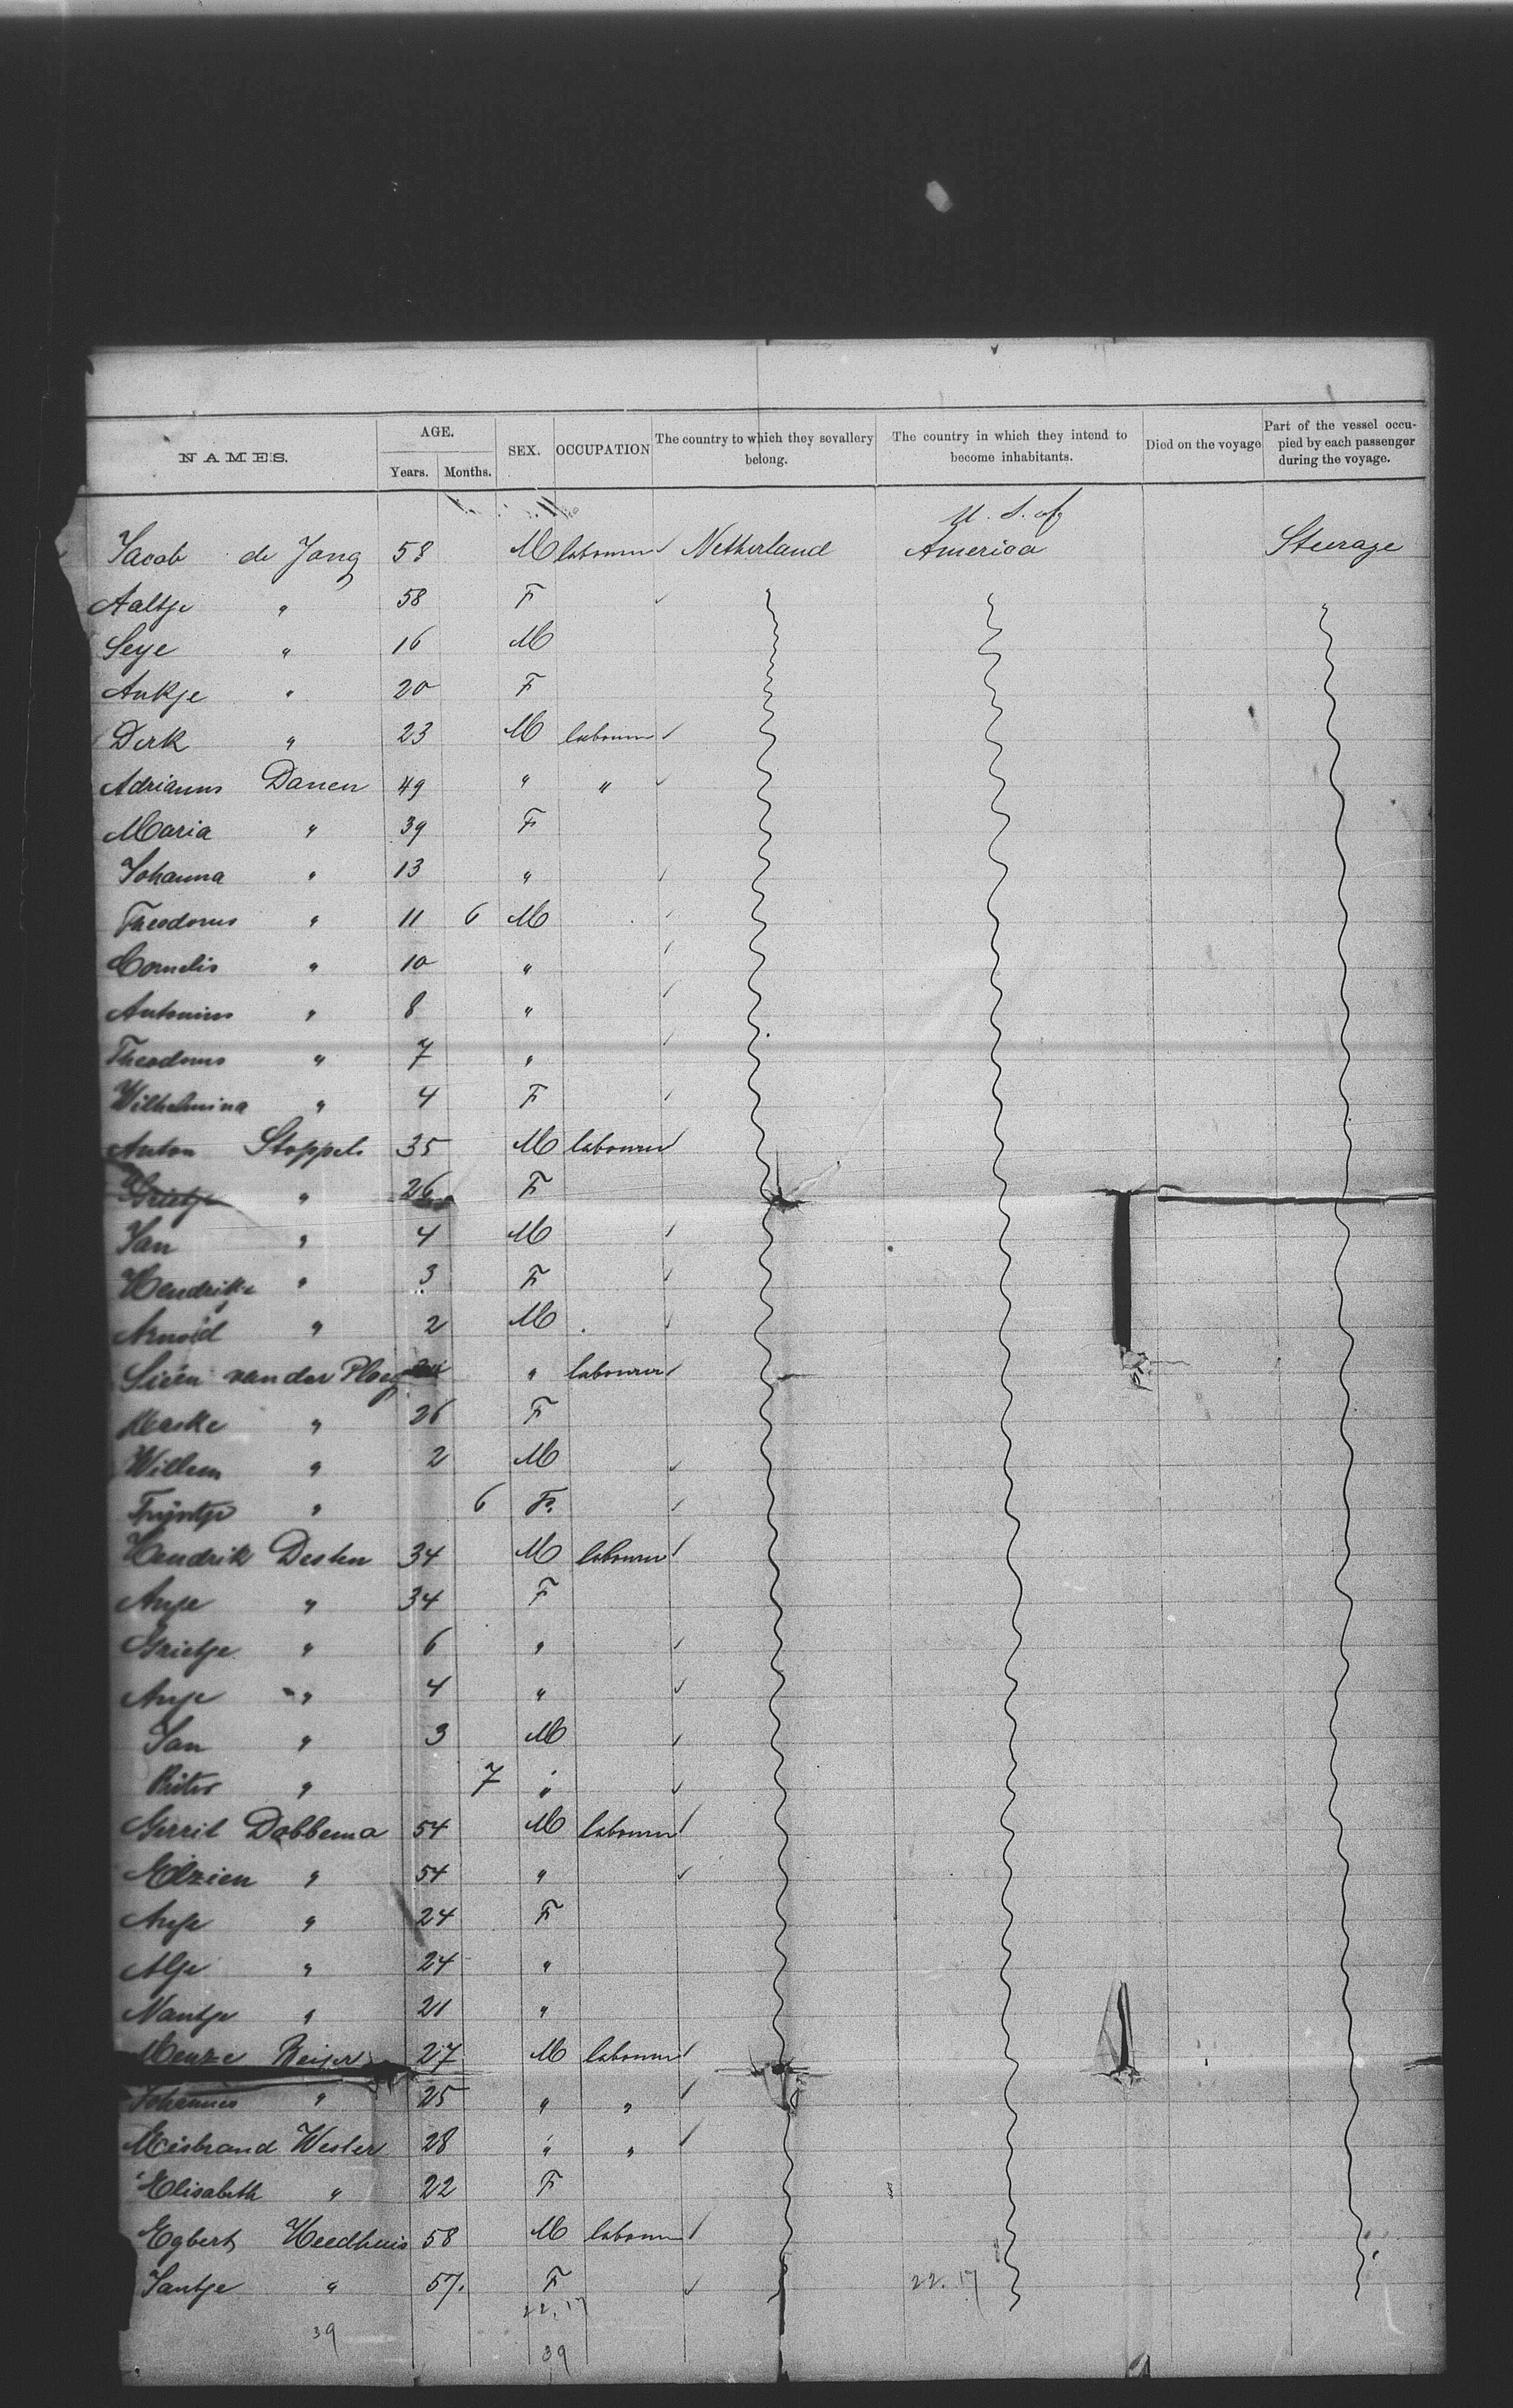 NAMES. AGE. SEX. OCCUPATION The country to which they sevallery belong. The country in which they intend to become inhabitants. Died on the voyage Part of the vessel occupied by each passenger during the voyage.
Years. Months.
U. S. of
Jacob de Jong 58 M labourer Netherland America Steerage
Aaltje " 58 F
Seye " 16 M
Ankje " 20 F
Dirk " 23 M labourer
Adrianus Danen 49 " "
Maria " 39 F
Johanna " 13 "
Theodorus " 11 6 M
Cornelis " 10 "
Antonius " 8 "
Theodorus " 7 "
Wilhelmina " 4 F
Anton Stoppels 35 M labourer
Grietje " 26 F
Jan " 4 M
Hendrika " 3 F
Arnold " 2 M
Sieën van der Ploeg " labourer
Maske " 26 F
Willem " 2 M
Trijntje " 6 F.
Hendrik Desten 34 M labourer
Anje " 34 F
Grietje " 6 "
Anje " 4 "
Jan " 3 M
Pieter " 7 "
Gerrit Dobbema 54 M labourer
Elzien " 54 "
Anje " 24 F
Alje " 24 "
Nantje " 21 "
Menze Reijer 27 M labourer
Johannes " 25 " "
Meisbrand Wester 28 " "
Elisabeth " 22 F
Egbert Heedhuis 58 M labourer
Jantje " 57. F 22.17
22.17
39
39